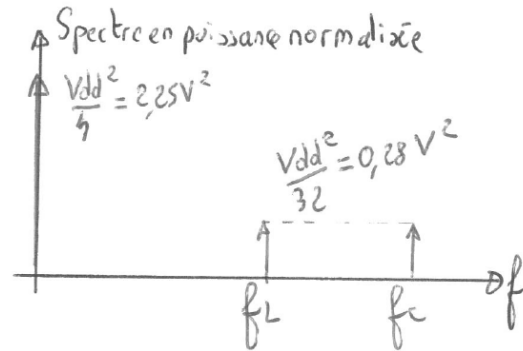 Spectre en puissance normalisée
Vdd²/4 = 2,25V²
Vdd²/32 = 0,28 V²
fL
fc
f